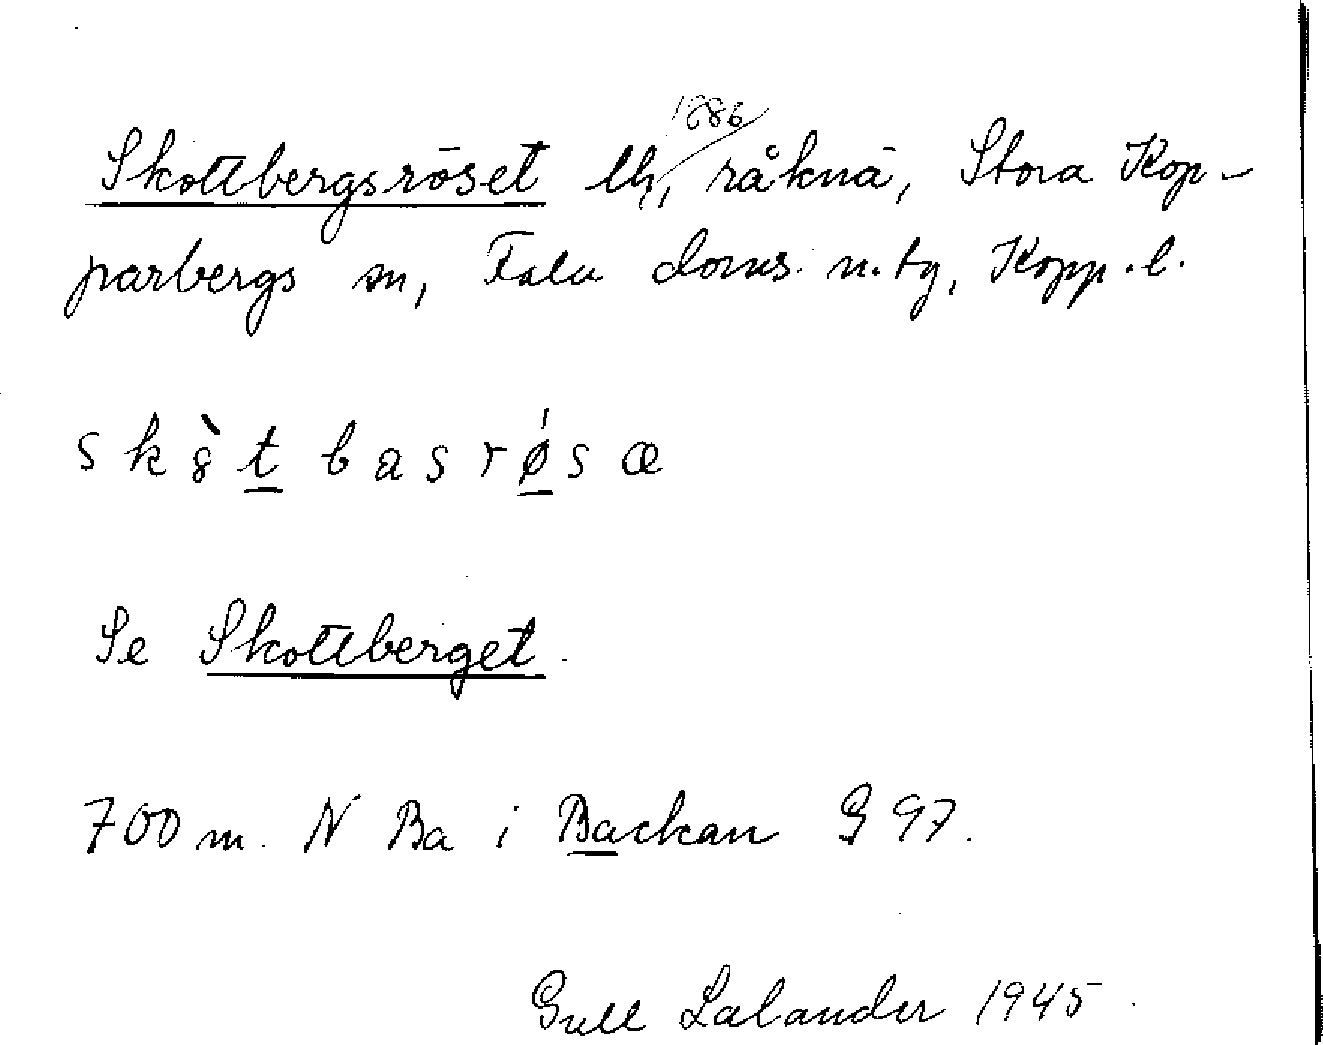 1886
Skottbergsröset lh, råknä, Stora Kop-
parbergs sn, Falu doms. n. tg, Kopp. l.
sk8̀t basrǿsæ
Se Skottberget.
700 m. N Ba i Backan G 97.
Gull Lalander 1945.